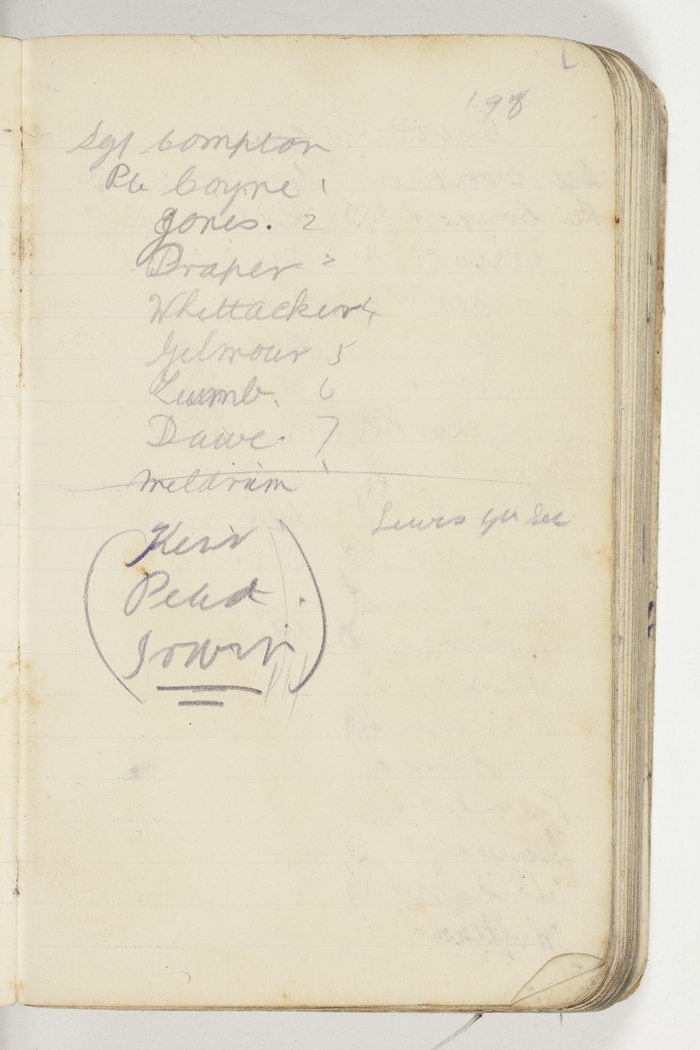 198
Sgt Compton
Pte Coyne 1
Jones. 2
Draper 3
Whittacker 4
Gilmour 5
Lumb. 6
Dawe. 7
Meldrum
Lewis Gun Sec
Keir
Pead
Irwin